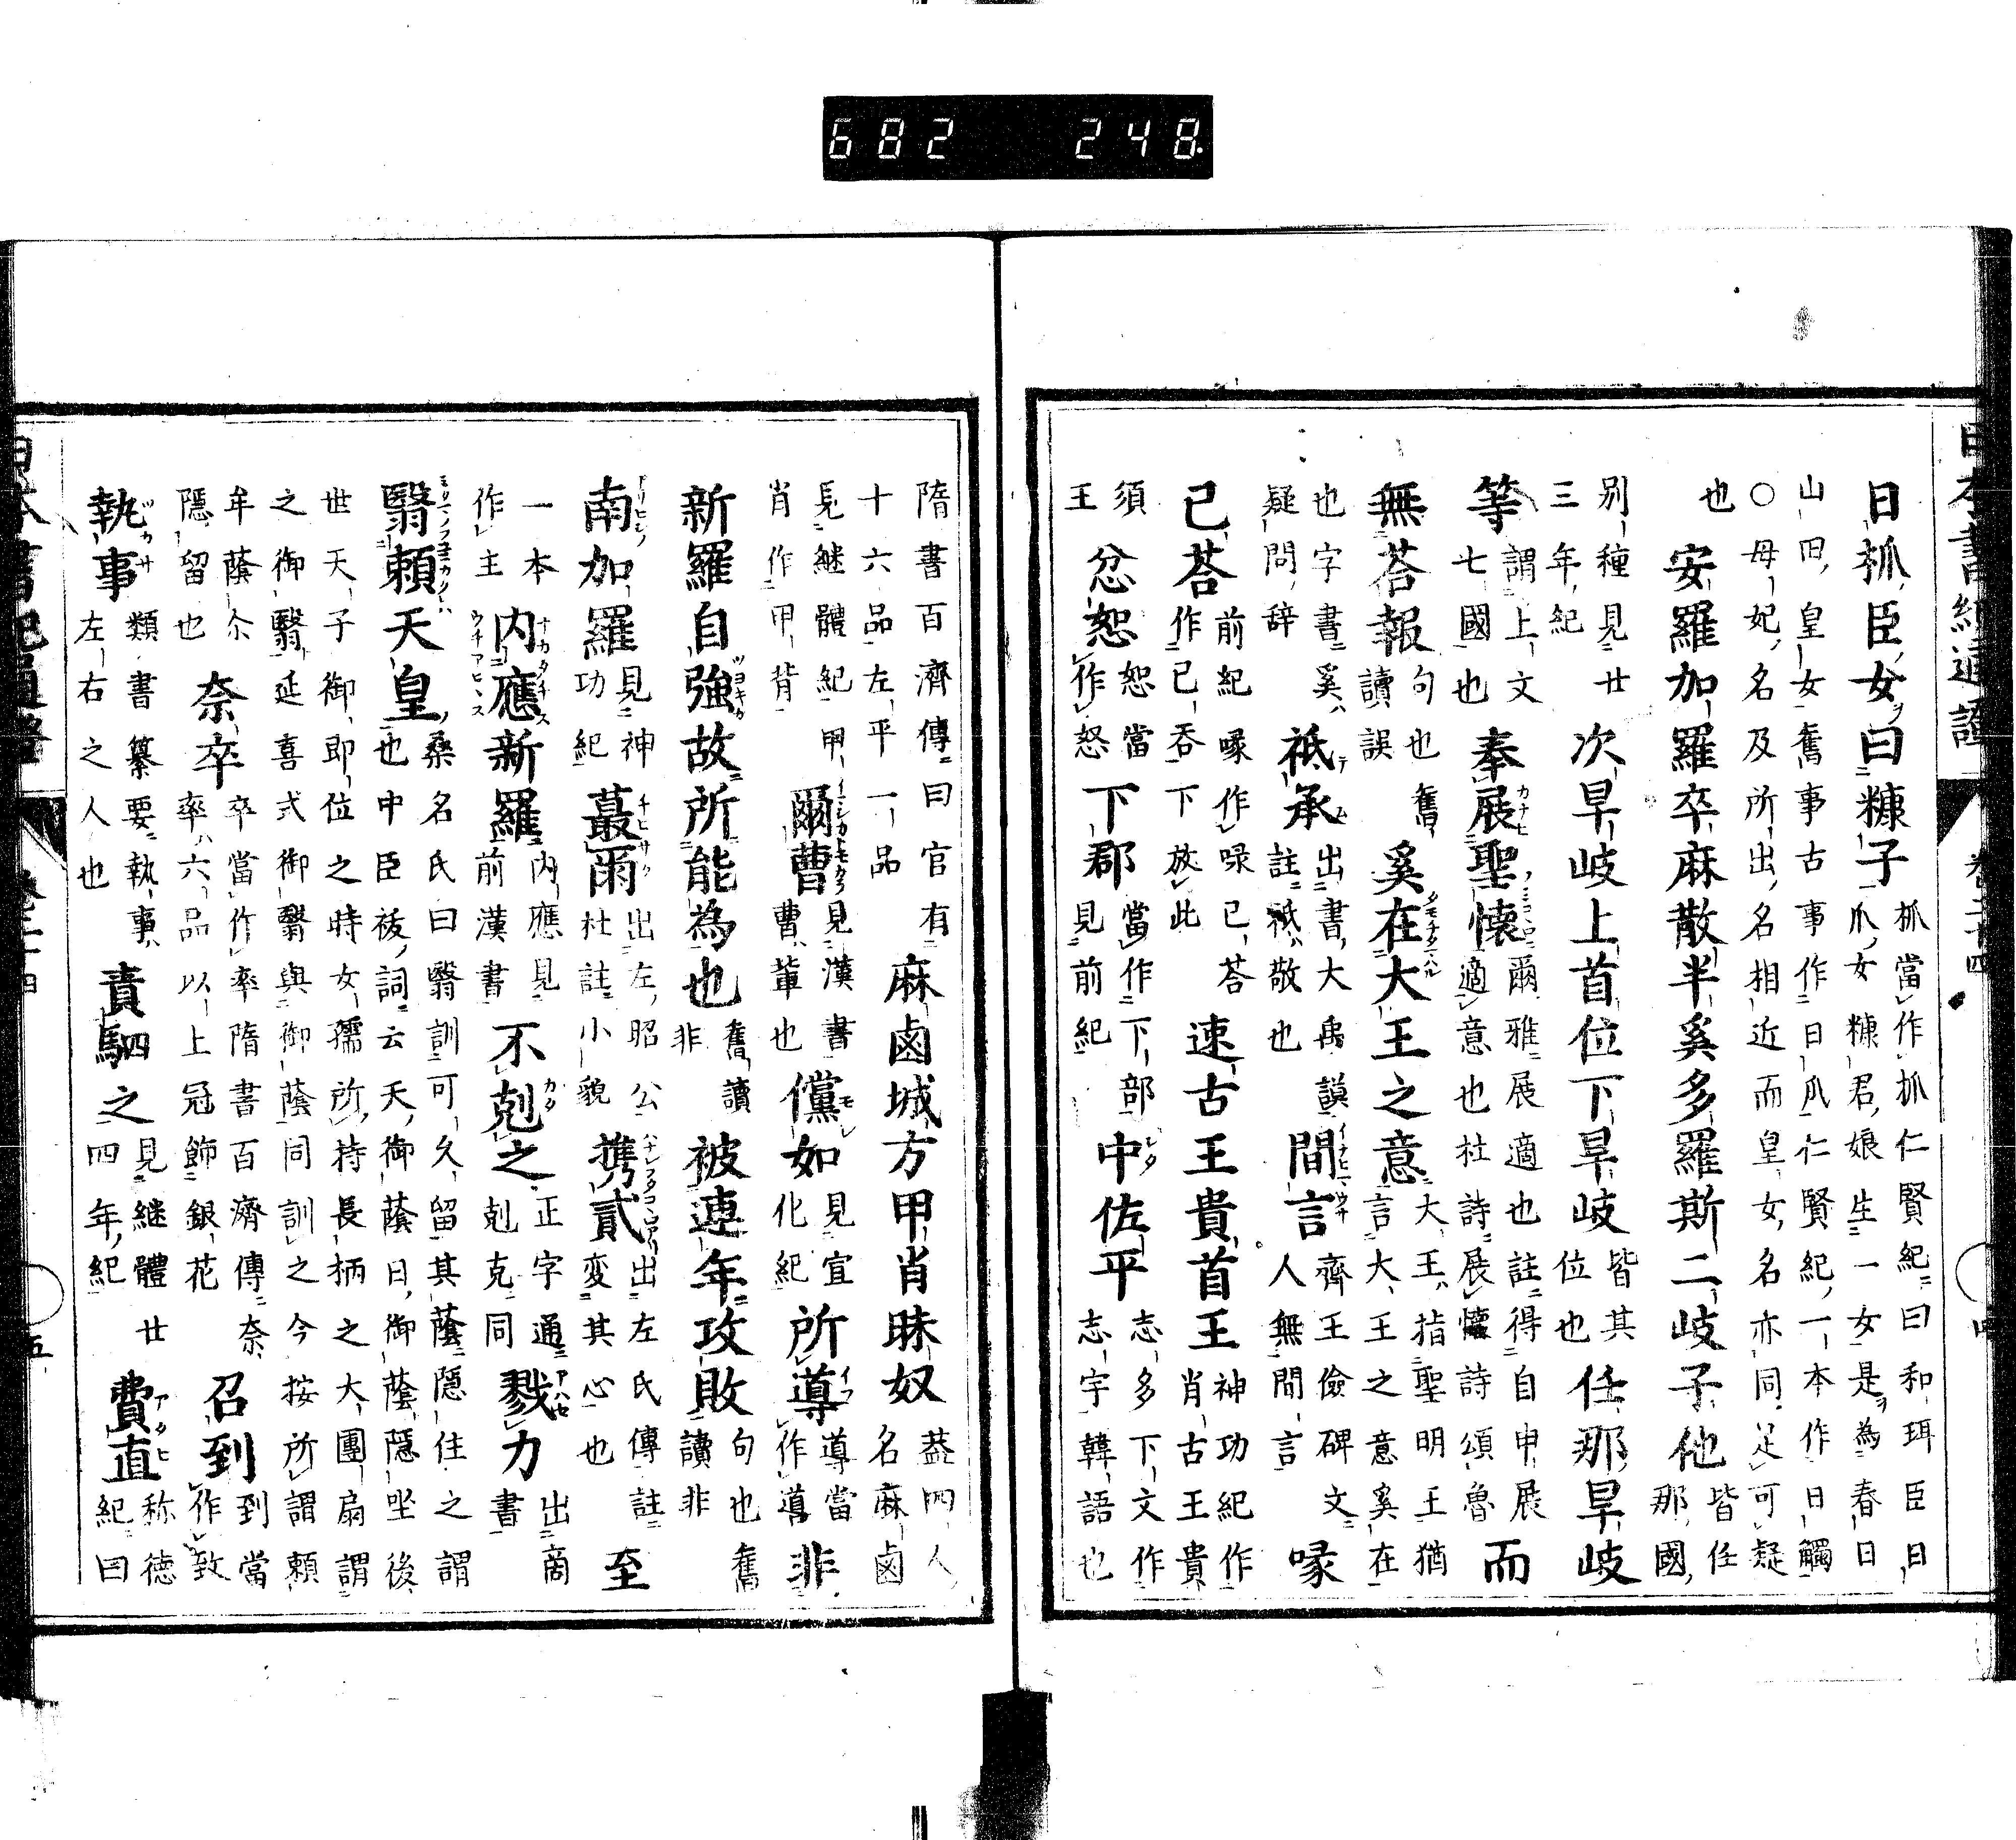 682 248
日本書紀通證
日抓臣女曰糠子 抓當作抓仁賢紀曰和珥臣日
爪女糠君娘生一女是為春日
山田皇女舊事古事作日爪仁賢紀一本作日觸
○母妃名及所出名相近而皇女名亦同足可疑
也 安羅加羅卒麻散半奚多羅斯二岐子他 皆任
那國
別種見廿
三年紀 次旱岐上首位下旱岐 皆其
位也 任那旱岐
等 謂上文
七國也 奉展聖懷 爾雅展適也註得自申展
適意也杜詩展懷詩頌魯 而
無荅報 句也舊
讀誤 奚在大王之意 大王指聖明王猶
言大王之意奚在
也字書奚
疑問辞 祗承 出書大禹謨
註祗敬也 間言 齊王儉碑文
人無間言 喙
已荅 前紀喙作㖨已荅
作已吞下放此 速古王貴首王 神功紀作
肖古王貴
須
王 忿恕 恕當
作怒 下郡 當作下部
見前紀 中佐平 志多下文作
志宇韓語也
四
隋書百濟傳曰官有
十六品左平一品 麻鹵城方甲肖昧奴 葢四人
名麻鹵
見継體紀甲
肖作甲背 爾曹 見漢書
曹輩也 儻如 見宣
化紀 所導 導當
作噵 非
新羅自強故所能為也 舊讀
非 被連年攻敗 句也舊
讀非
南加羅 見神
功紀 蕞爾 出左昭公
杜註小貌 携貳 出左氏傳註
変其心也 至
一本
作主 内應新羅 内應見
前漢書 不剋之 正字通
剋克同 戮力 出商
書
翳頼天皇 桑名氏曰翳訓可久留其蔭隱住之謂
也中臣祓詞云天御蔭日御蔭隱坐後
世天子御即位之時女孺所持長柄之大團扇謂
之御翳延喜式御翳與御蔭同訓之今按所謂頼
牟蔭尒
隱留也 奈卒 卒當作率隋書百濟傳奈
率六品以上冠飾銀花 召到 到當
作致
執事 類書纂要執事
左右之人也 責駟之 見継體廿
四年紀 費直 称德
紀曰
五